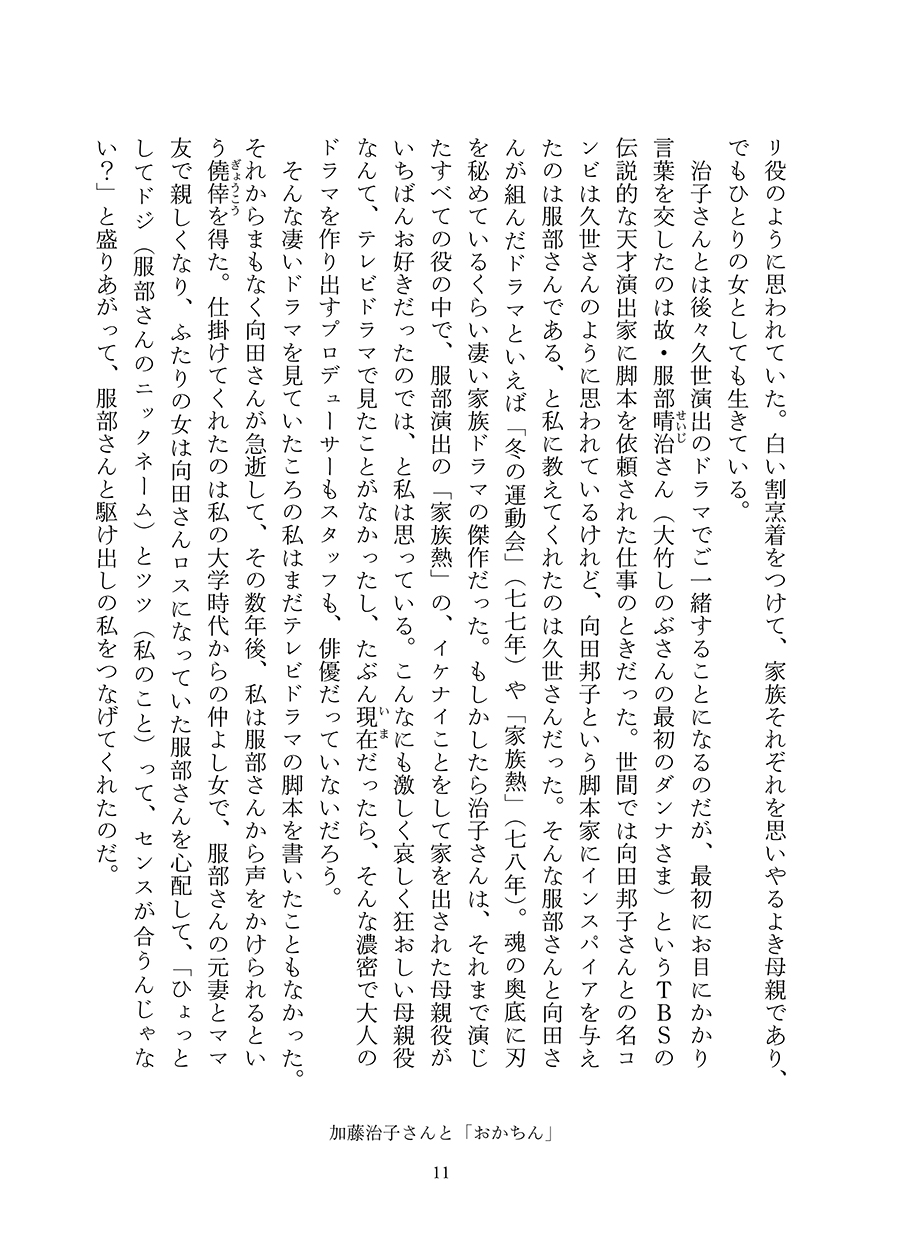 リ役のように思われていた。白い割烹着をつけて、家族それぞれを思いやるよき母親であり、
でもひとりの女としても生きている。
治子さんとは後々久世演出のドラマでご一緒することになるのだが、最初にお目にかかり
言葉を交したのは故・服部晴治さん（大竹しのぶさんの最初のダンナさま）というTBSの
せいじ
伝説的な天才演出家に脚本を依頼された仕事のときだった。世間では向田邦子さんとの名コ
ンビは久世さんのように思われているけれど、向田邦子という脚本家にインスパイアを与え
たのは服部さんである、と私に教えてくれたのは久世さんだった。そんな服部さんと向田さ
んが組んだドラマといえば「冬の運動会」（七七年）や「家族熱」（七八年）。魂の奥底に刃
を秘めているくらい凄い家族ドラマの傑作だった。もしかしたら治子さんは、それまで演じ
たすべての役の中で、服部演出の「家族熱」の、イケナイことをして家を出された母親役が
いちばんお好きだったのでは、と私は思っている。こんなにも激しく哀しく狂おしい母親役
なんて、テレビドラマで見たことがなかったし、たぶん現在だったら、そんな濃密で大人の
いま
ドラマを作り出すプロデューサーもスタッフも、俳優だっていないだろう。
そんな凄いドラマを見ていたころの私はまだテレビドラマの脚本を書いたこともなかった。
それからまもなく向田さんが急逝して、その数年後、私は服部さんから声をかけられるとい
う僥倖を得た。仕掛けてくれたのは私の大学時代からの仲よし女で、服部さんの元妻とママ
ぎょうこう
友で親しくなり、ふたりの女は向田さんロスになっていた服部さんを心配して、「ひょっと
してドジ（服部さんのニックネーム）とツツ（私のこと）って、センスが合うんじゃな
い？」と盛りあがって、服部さんと駆け出しの私をつなげてくれたのだ。
加藤治子さんと「おかちん」
11